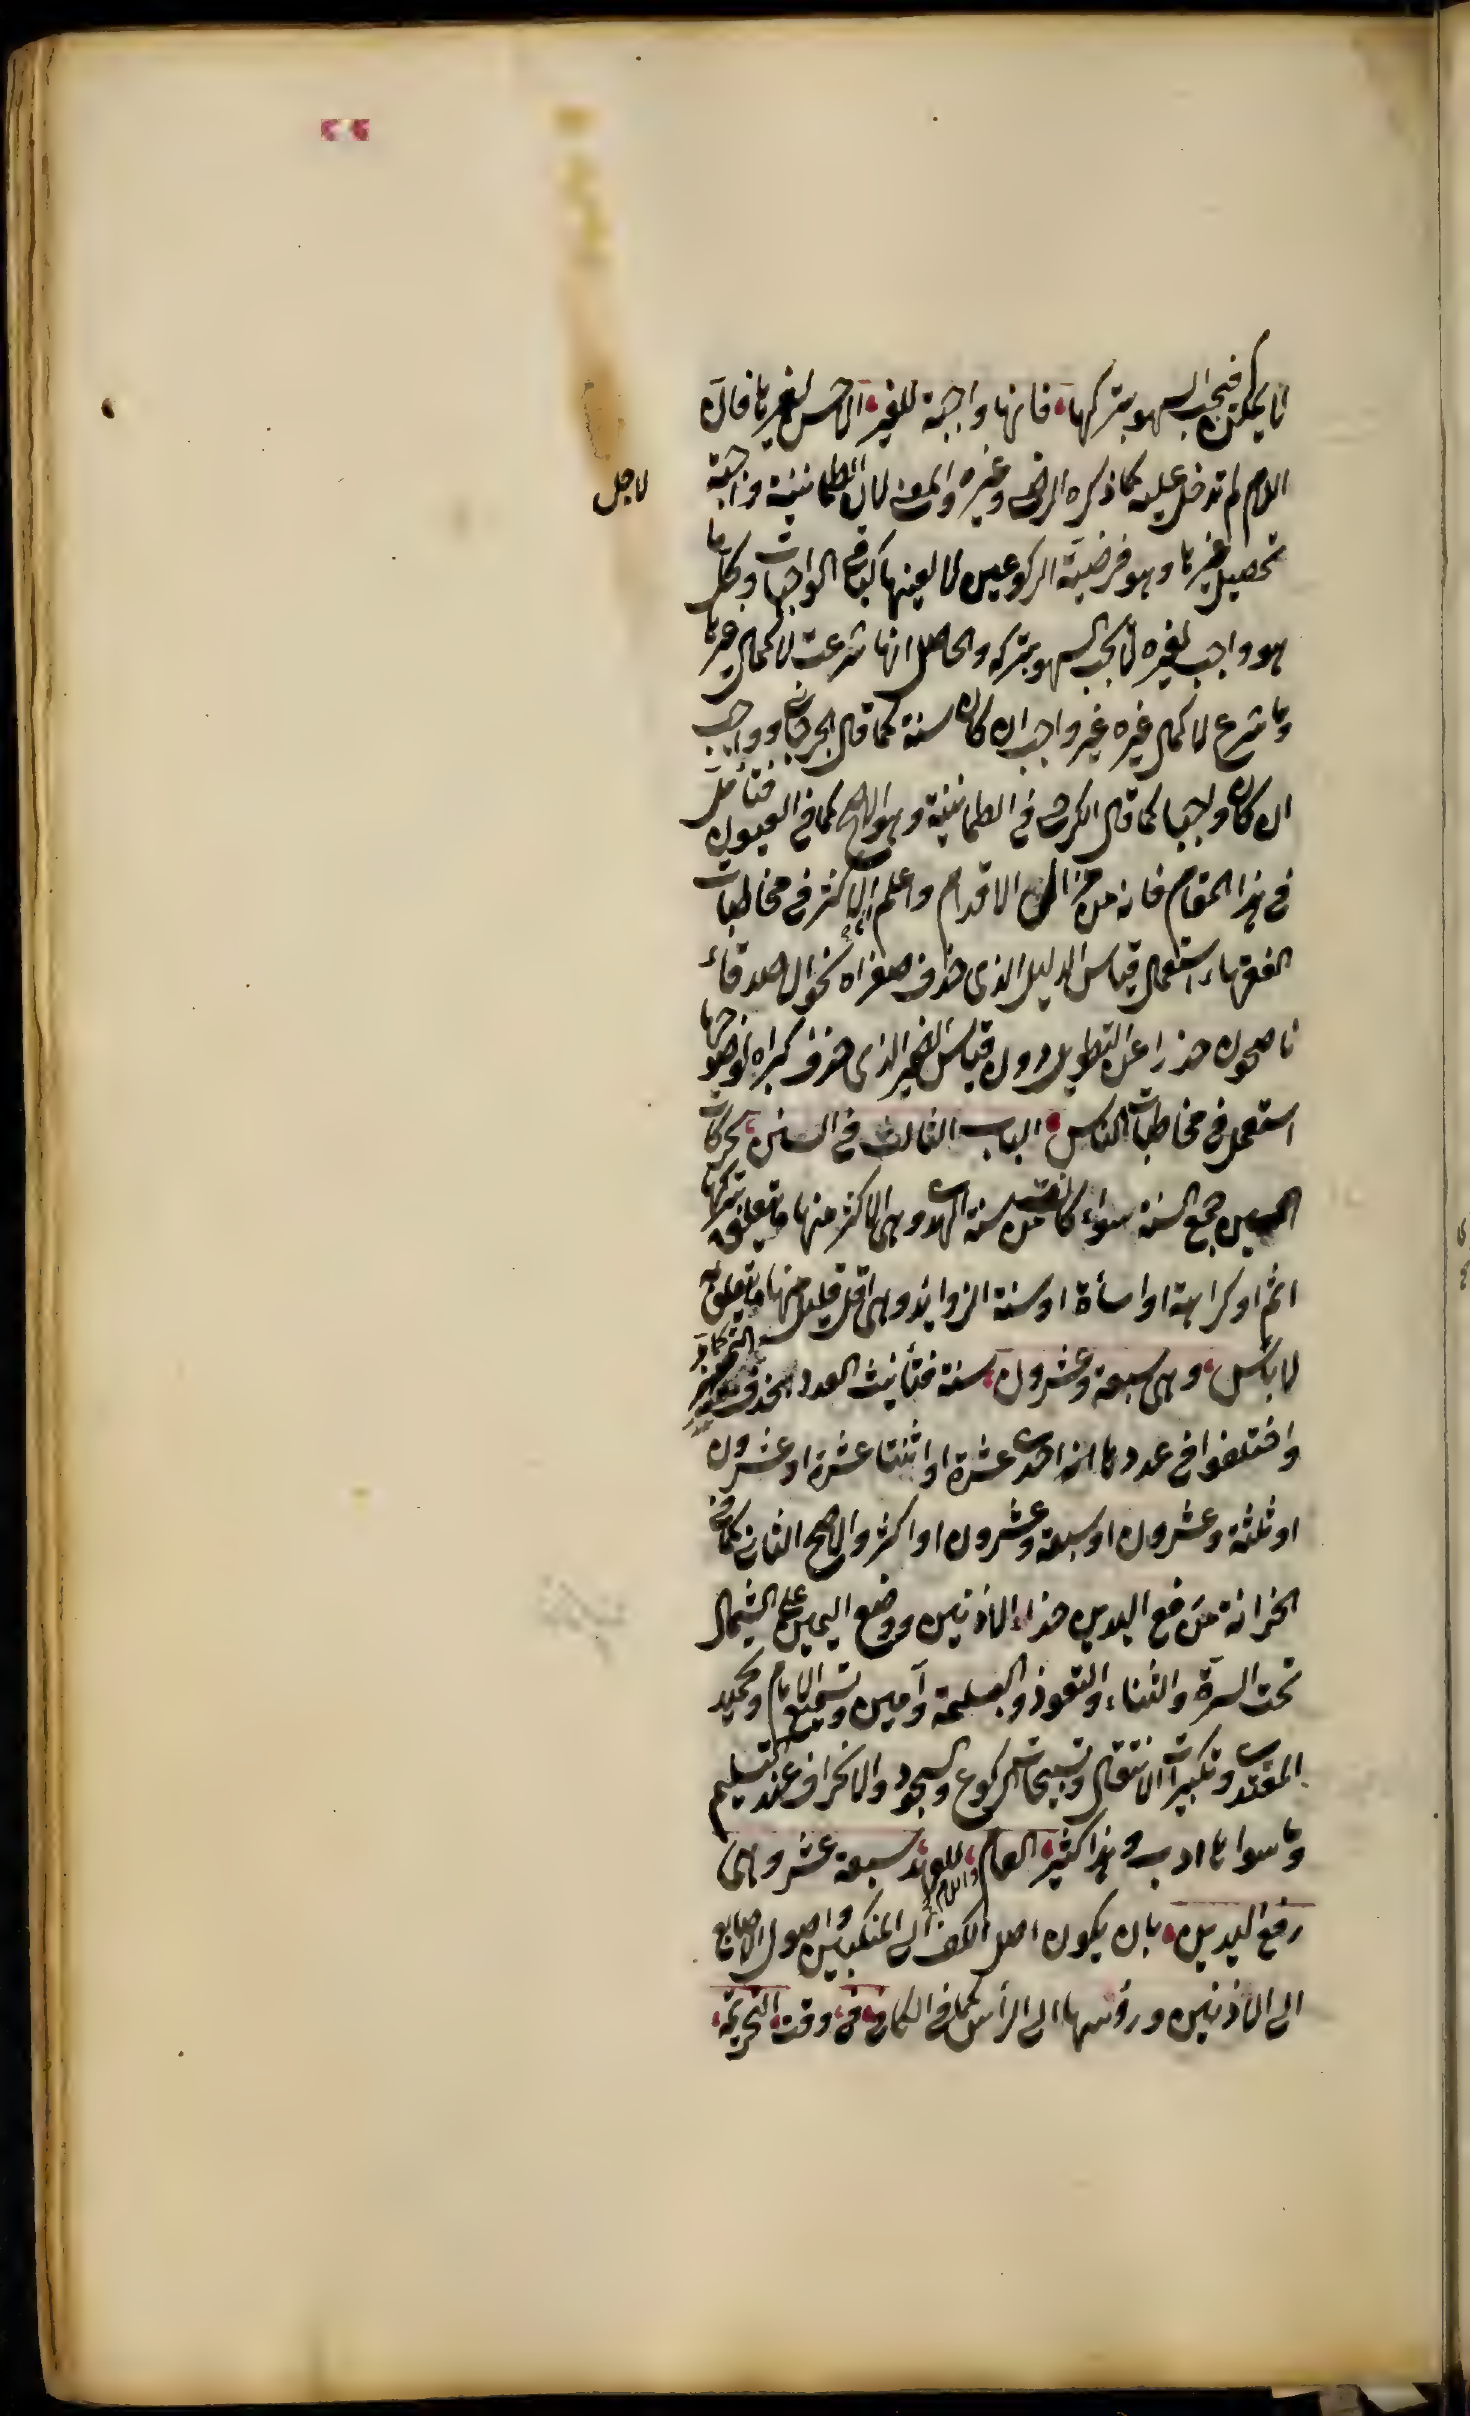 لا يمكن فيجب السهو بتركها فانها واجبة للغير الاحسن لغيرها فان
اللام لم تدخل عليه كما ذكره الرضى وغيره والمعنى لان الطمانينة واجبة
لاجل
تحصيل غيرها وهو فرضية الركوعين لا لعينها كباقى الواجبات وكل ما
هو واجب لغيره لا يجب السهو بتركه والحاصل انها شرعت لاكمال غيرها
وما شرع لاكمال غيره غير واجب ان كان سنة كما قال الجرجانى وواجب
ان كان واجبا كما قال الكرخى فى الطمانينة وهو الاصح كما فى العيون فتأمل
فى هذا المقام فانه من مزال الاقدام واعلم ان الاكثر فى مخاطبات
الفقهاء استعمال قياس الدليل الذى حذف صغراه نحو الاصدقاء
ناصحون حذرا عن التطويل دون قياس الضمير الذى حذف كبراه لوضوحها
استعمل فى مخاطبات الناس الباب الثالث فى السنن بحركات
السين جمع السنة سواء كانت من سنة الهدى وهى الاكثر منها ما يتعلق بتركها
اثم او كراهة او اساءة او سنة الزوايد وهى اقل قليل منها ما يتعلق به
لا بأس وهى سبعة وعشرون سنة فتأنيث العدد لحذف
واختلفوا فى عددها انه احدى عشرة او اثنتا عشرة او عشرون
او ثلثة وعشرون او سبعة وعشرون او اكثر والاصح الثانى كما فى
الخزانة من رفع اليدين حذاء الاذنين ووضع اليمين على الشمال
تحت السرة والثناء والتعوذ والبسملة وآمين وتسميع الامام وتحميد
المقتدى وتكبيرات الانتقال وتسبيحات الركوع والسجود والانحراف عند التسليم
وما سواها ادب وهذا كثير العام سبعة عشر وهى
رفع اليدين بان يكون اصل الكف الى المنكبين واصول الاصابع
الى الاذنين ورؤسها الى الرأس كما فى الكافى فى وقت التحريمة